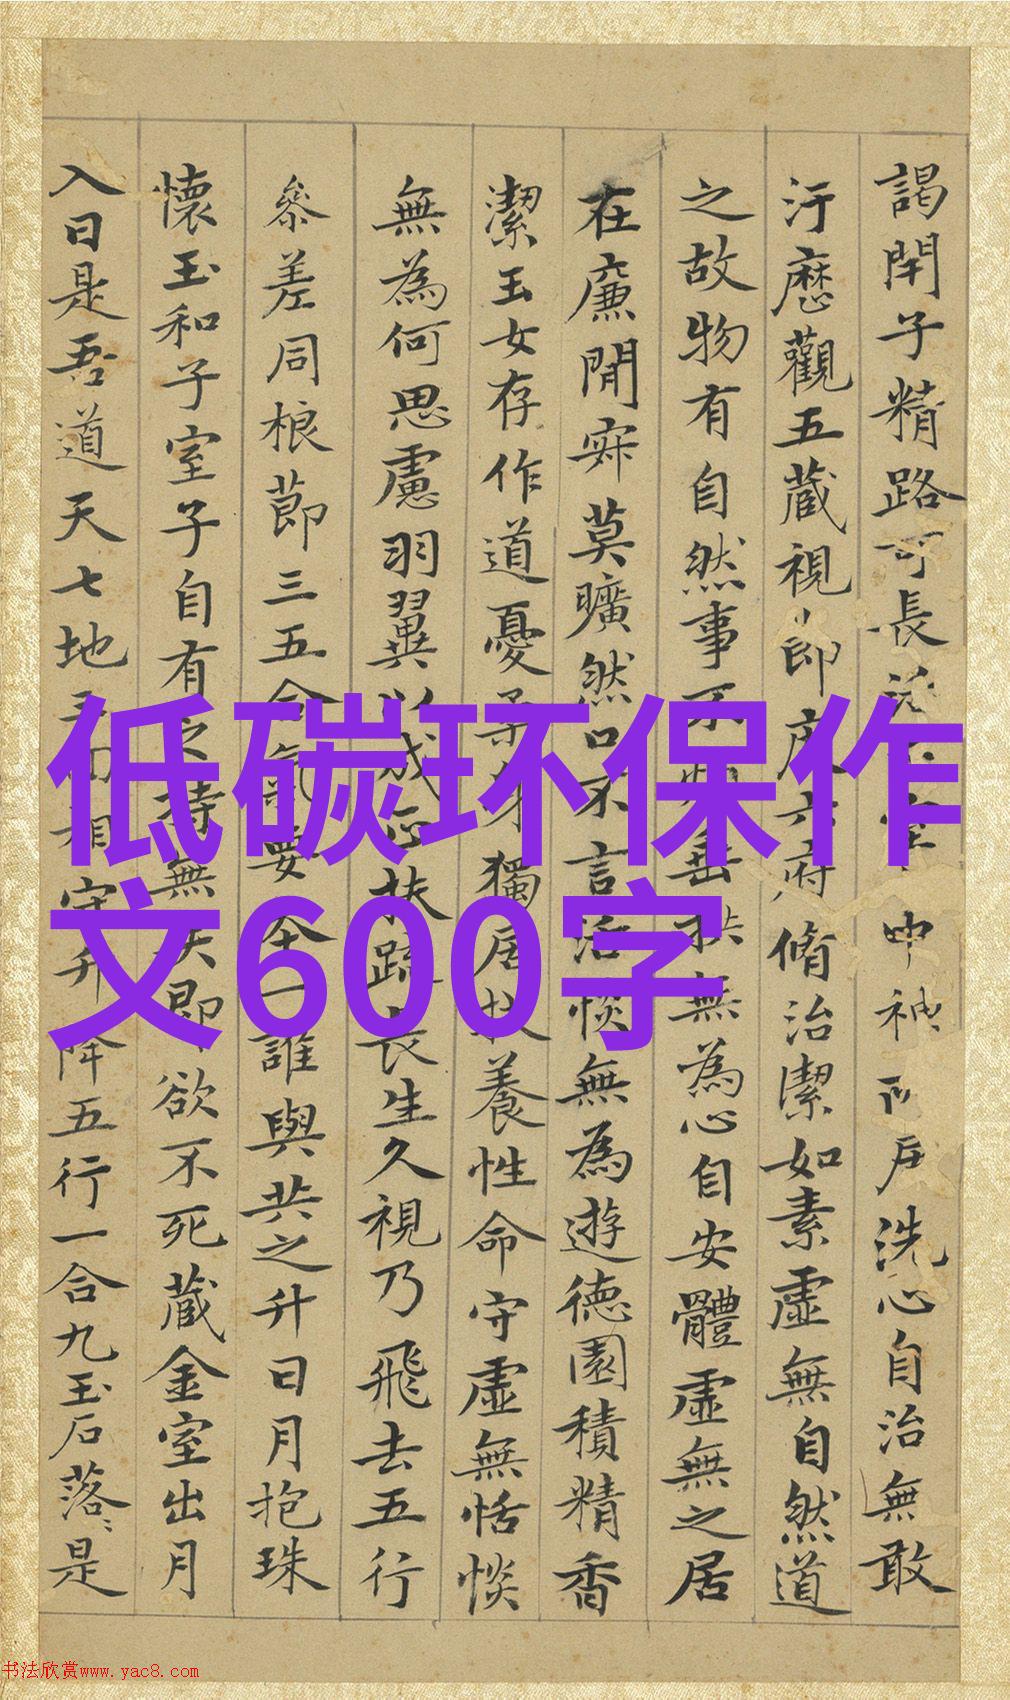 謁閇子精路可長活室中神所居洗心自治無敢
汙歷觀五藏視節度六府脩治潔如素虛無自然道
之故物有自然事不煩垂拱無為心自安體虛無之居
在廉閒寂莫曠然口不言活惔無為遊德園積精香
潔玉女存作道憂柔身獨居扶養性命守虛無恬惔
無為何思慮羽翼以成正扶疏長生久視乃飛去五行
參差同根節三五合氣要本一誰與共之升日月抱珠
懷玉和子室子自有之持無失即欲不死藏金室出月
入日是吾道天七地三回相守升降五行一合九玉石落〻是
低碳环保作
文600字
书法欣赏www.yac8.com